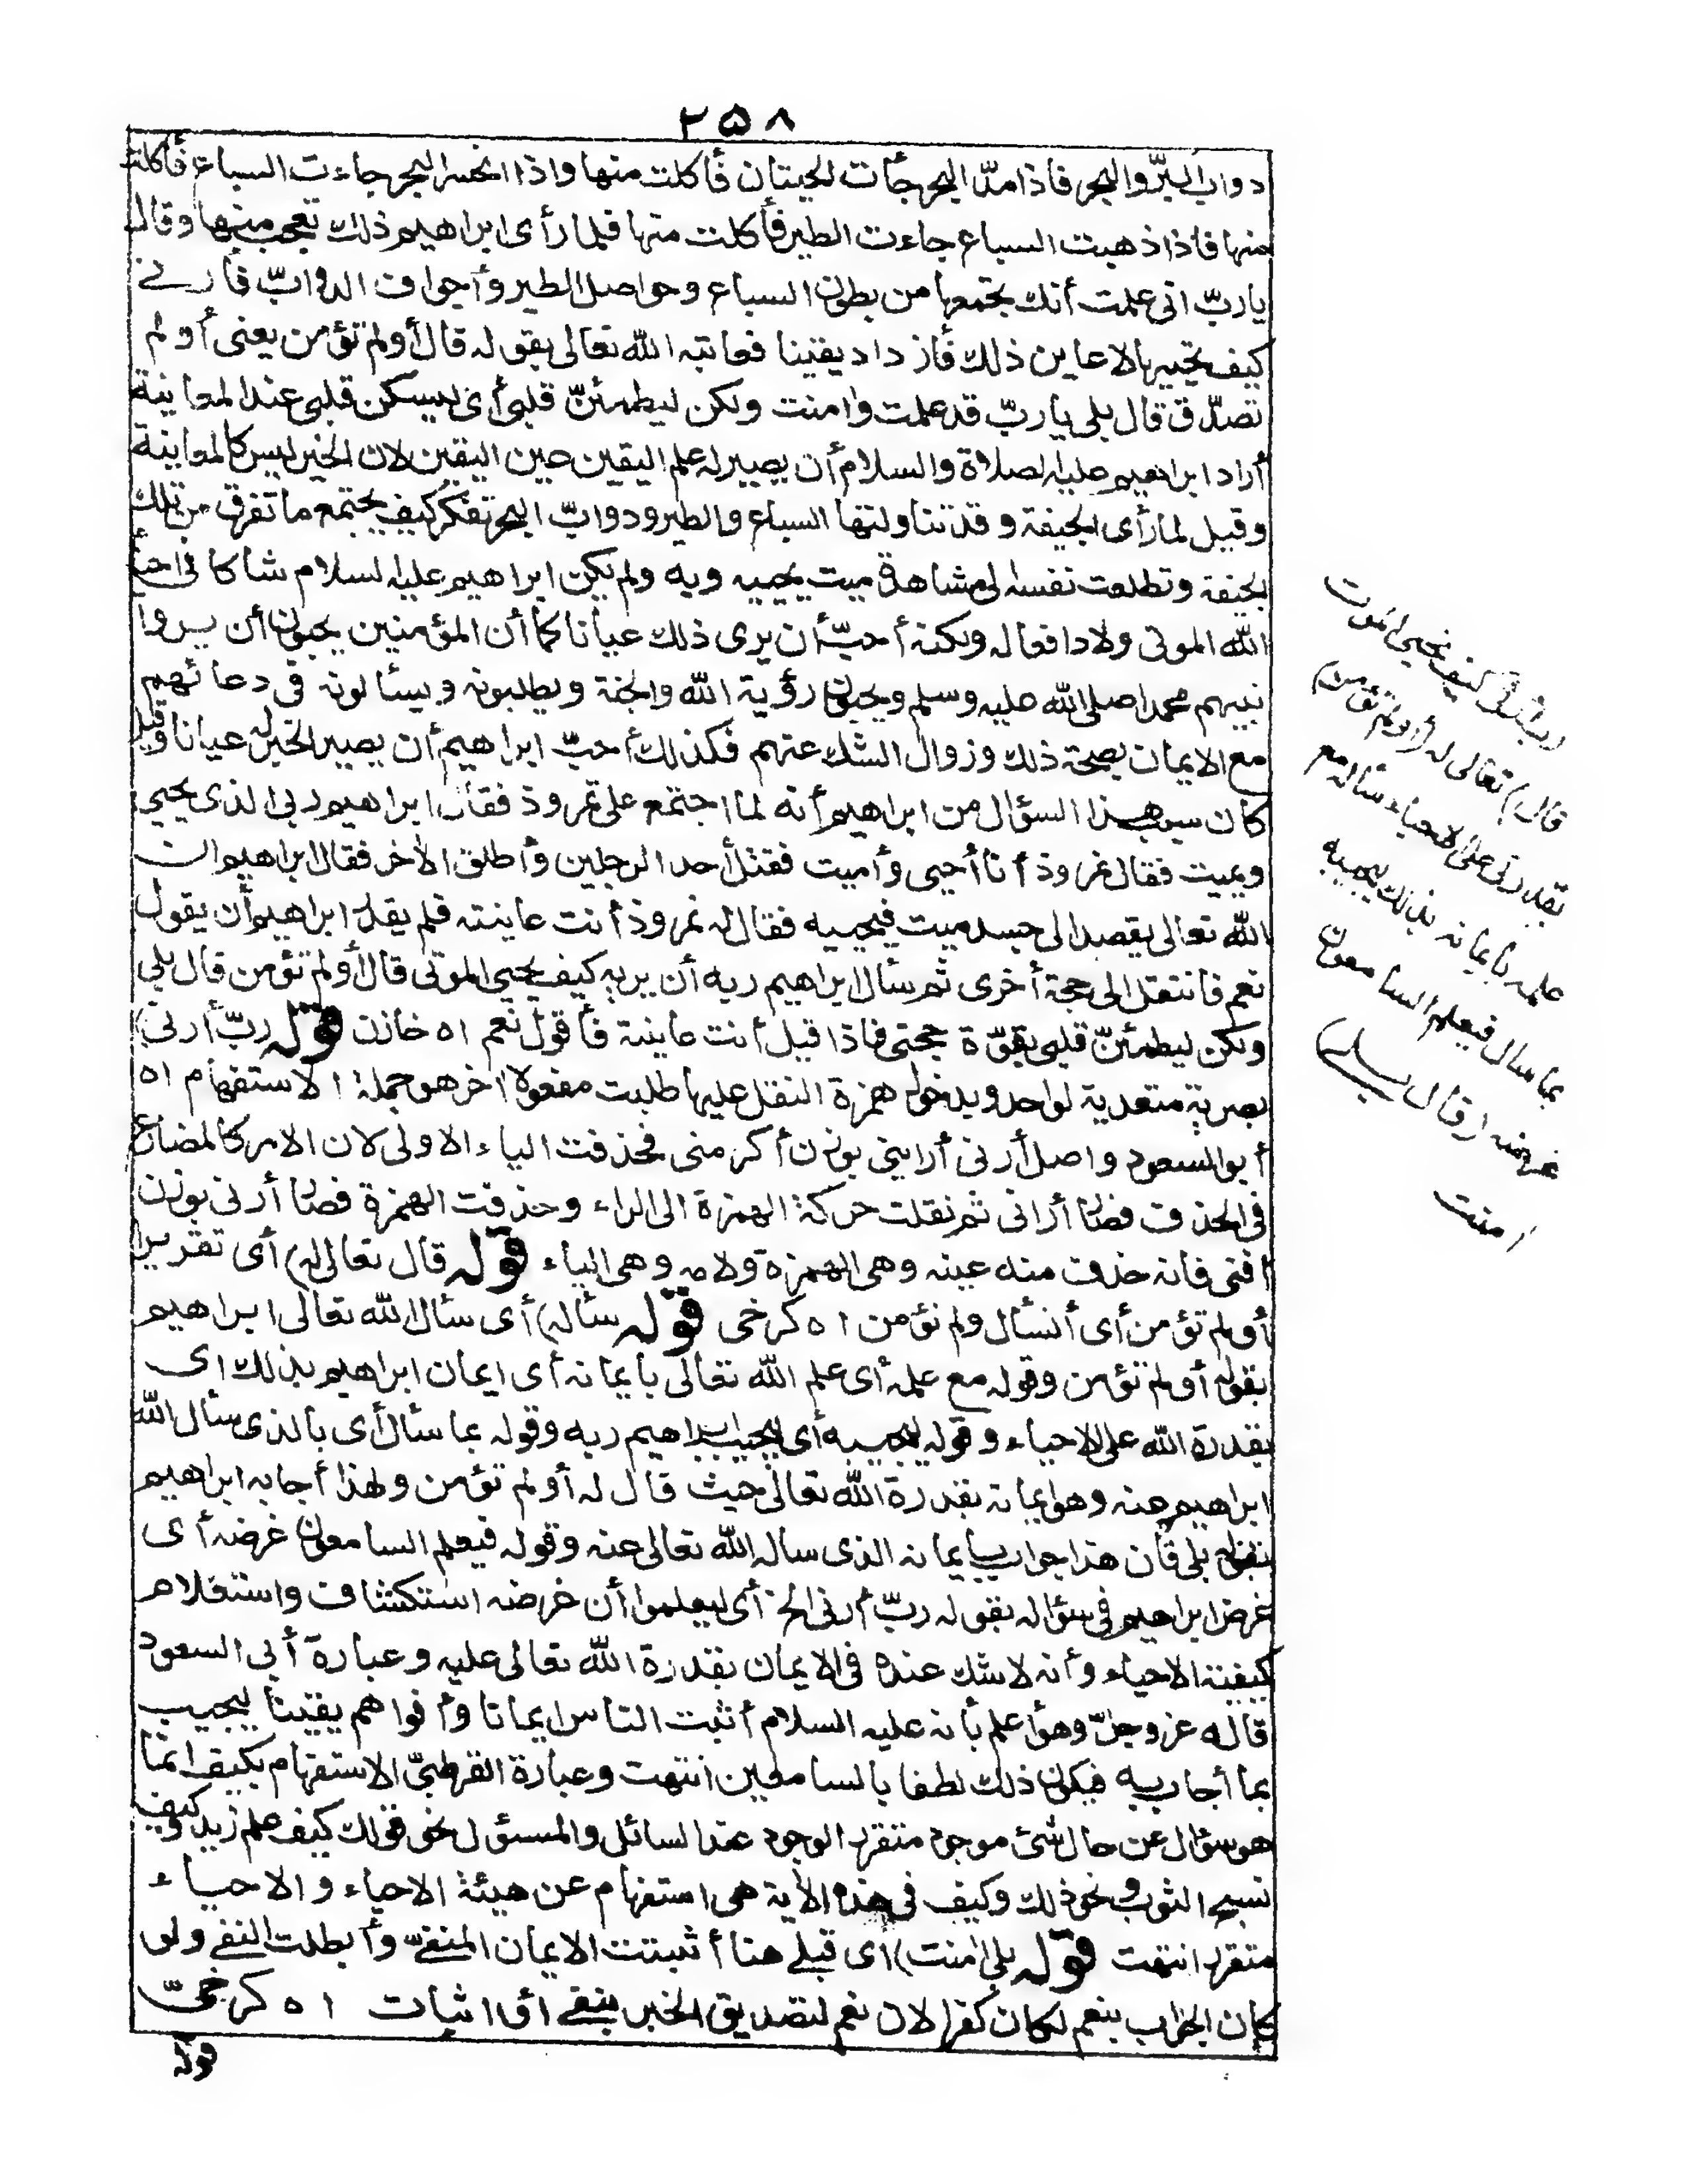 ٢٥٨
دواب البرّ والبحر فاذا مدّ البحر جأت الحيتان فأكلت منها واذا انحسر البحر جاءت السباع فأكلت
منها فاذا ذهبت السباع جاءت الطير فأكلت منها فلما رأى ابراهيم ذلك تعجب منها وقال
يا ربّ انى علمت أنك تجمعها من بطون السباع وحواصل الطير وأجواف الدوابّ فأرنے
كيف تحييها لاعاين ذلك فأزداد يقينا فعاتبه الله تعالى بقوله قال أولم تؤمن يعنى أو لم
تصدّق قال بلى يا ربّ قد علمت وامنت ولكن ليطمئنّ قلبى أى ليسكن قلبى عند المعاينة
أراد ابراهيم عليه الصلاة والسلام أن يصير له علم اليقين عين اليقين لان الخبر ليس كالمعاينة
وقيل لما رأى الجيفة وقد تناولتها السباع والطير ودوابّ البحر تفكر كيف يجتمع ما تفرق من تلك
الجيفة وتطلعت نفسه الى مشاهدة ميت يحييه ربه ولم يكن ابراهيم عليه السلام شاكا فى احيأ
الله الموتى ولا دافعا له ولكنه أحبّ أن يرى ذلك عيانا كما أن المؤمنين يحبون أن يروا
نبيهم محمدا صلى الله عليه وسلم ويحبون رؤية الله والجنة ويطلبونه ويسألونه فى دعائهم
مع الايمان بصحة ذلك وزوال الشك عنهم فكذلك أحبّ ابراهيم أن يصير الخبر له عيانا وقيل
كان سبب هذا السؤال من ابراهيم أنه لما اجتمع على نمروذ فقال ابراهيم ربى الذى يحيى
ويميت فقال نمروذ أنا أحيى وأميت فقتل أحد الرجلين وأطلق الأخر فقال ابراهيم ان
الله تعالى يقصد الى جسد ميت فيحييه فقال له نمروذ أنت عاينته فلم يقل ابراهيم أن يقول
نعم فانتقل الى حجة أخرى ثم سأل ابراهيم ربه أن يريه كيف يحيى الموتى قال أولم تؤمن قال بلى
ولكن ليطمئنّ قلبى بقوّة حجتى فاذا قيل أنت عاينته فأقول نعم اه خازن قوله ربّ أرنى)
بصرية متعدية لواحد وبدخول همزة النقل عليها طلبت مفعولا اخر هو جملة الاستفهام اه
أبو السعود واصل أرنى أرايني بوزن أكرمنى فحذفت الياء الاولى لان الامر كالمضارع
فى الحذف فصار أرانى ثم نقلت حركة الهمزة الى الراء وحذفت الهمزة فصار أرنى بوزن
افنى فانه حذفت منه عينه وهى الهمزة ولامه وهى الياء قوله قال تعالى له) أى تقريرا
أولم تؤمن أى أتسأل ولم تؤمن اه كرخى قوله سأله) أى سأل الله تعالى ابراهيم
بقوله أولم تؤمن وقوله مع علمه أى علم الله تعالى بايمانه أى ايمان ابراهيم بذلك اى
بقدرة الله على الاحياء وقوله ليجيبه أى ليجيب ابراهيم ربه وقوله بما سأل أى بالذى سأل الله
ابراهيم عنه وهو ايمانه بقدرة الله تعالى حيث قال له أو لم تؤمن ولهذا أجابه ابراهيم
بقوله بلى فان هذا جواب بايمانه الذى ساله الله تعالى عنه وقوله فيعلم السامعون غرضه أى
غرض ابراهيم فى سؤاله بقوله ربّ أرنى الخ أى ليعلموا أن غرضه استكشاف واستعلام
كيفية الاحياء وأنه لا شك عنده فى الايمان بقدرة الله تعالى عليه وعبارة أبى السعود
قاله عز وجلّ وهو أعلم بأنه عليه السلام أثبت الناس ايمانا وأقواهم يقينا ليجيب
بما أجاب به فيكون ذلك لطفا بالسامعين انتهت وعبارة القرطبىّ الاستفهام بكيف انما
هو سؤال عن حال شئ موجود متقرر الوجود عند السائل والمسؤل نحو قولك كيف علم زيد وكيف
نسج الثوب ونحو ذلك وكيف فى هذه الأية هى استفهام عن هيئة الاحياء والاحياء
متقرر انتهت قوله بلى امنت) أى قبلے هنا أثبتت الايمان المنفےّ وأبطلت النفے ولو
كان الجواب بنعم لكان كفرا لان نعم لتصديق الخبر بنفے أو اثبات اه كرخىّ
قوله
رب أرنى كيف تحيى الموت
قال) تعالى له (أولم تؤمن)
بقدرتى على الاحياء ساله مع
علمه بايمانه بذلك ليجيبه
بما سال فيعلم السامعون
غرضه (قال بلى)
امنت